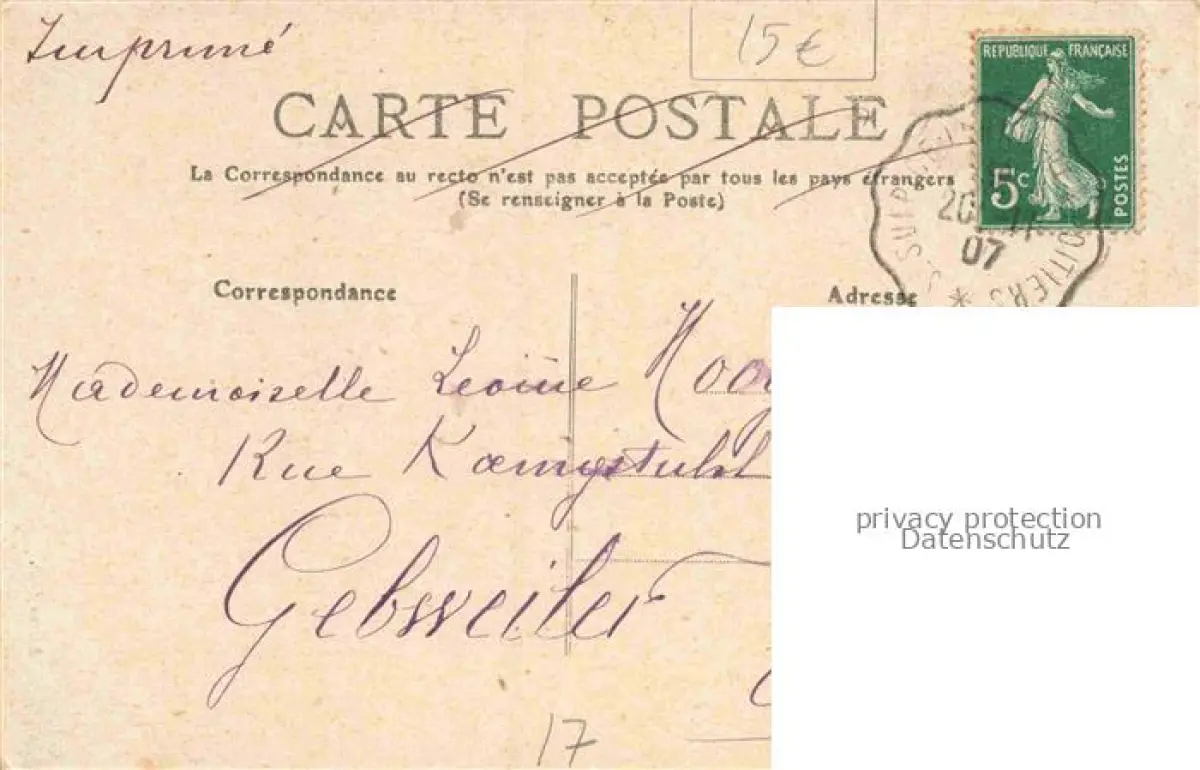 Imprimé
15€
CARTE POSTALE
REPUBLIQUE FRANÇAISE
5c
POSTES
La Correspondance au recto n'est pas acceptée par tous les pays étrangers
(Se renseigner à la Poste)
07
POITIERS
Correspondance
Adresse
Mademoiselle Leonie
Rue
Gebweiler
privacy protection
Datenschutz
17